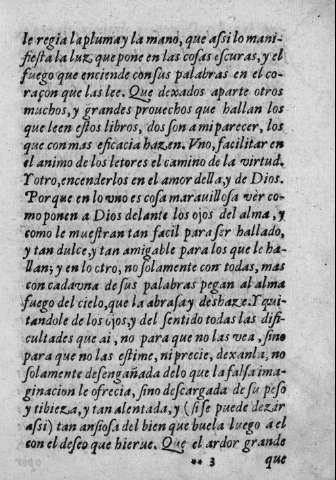 le regia la pluma y la mano, que assi lo mani-
fiesta la luz que pone en las cosas escuras, y el
fuego que enciende con sus palabras en el co-
raçon que las lee. Que dexados aparte otros
muchos, y grandes prouechos que hallan los
que leen estos libros, dos son a mi parecer, los
que con mas eficacia hazen. Vno, facilitar en
el animo de los letores el camino de la virtud.
Y otro, encenderlos en el amor della, y de Dios.
Porque en lo vno es cosa marauillosa vèr co-
mo ponen a Dios delante los ojos del alma, y
como le muestran tan facil para ser hallado,
y tan dulce, y tan amigable para los que le ha-
llan; y en lo otro, no solamente con todas, mas
con cada vna de sus palabras pegan al alma
fuego del cielo, que la abrasa y deshaze. Y qui-
tandole de los ojos, y del sentido todas las difi-
cultades que ai, no para que no las vea, sino
para que no las estime, ni precie, dexanla, no
solamente desengañada de lo que la falsa ima-
ginacion le ofrecia, sino descargada de su peso
y tibieza, y tan alentada, y (si se puede dezir
assi) tan ansiosa del bien que buela luego a el
con el deseo que hierue. Que el ardor grande
** 3 que